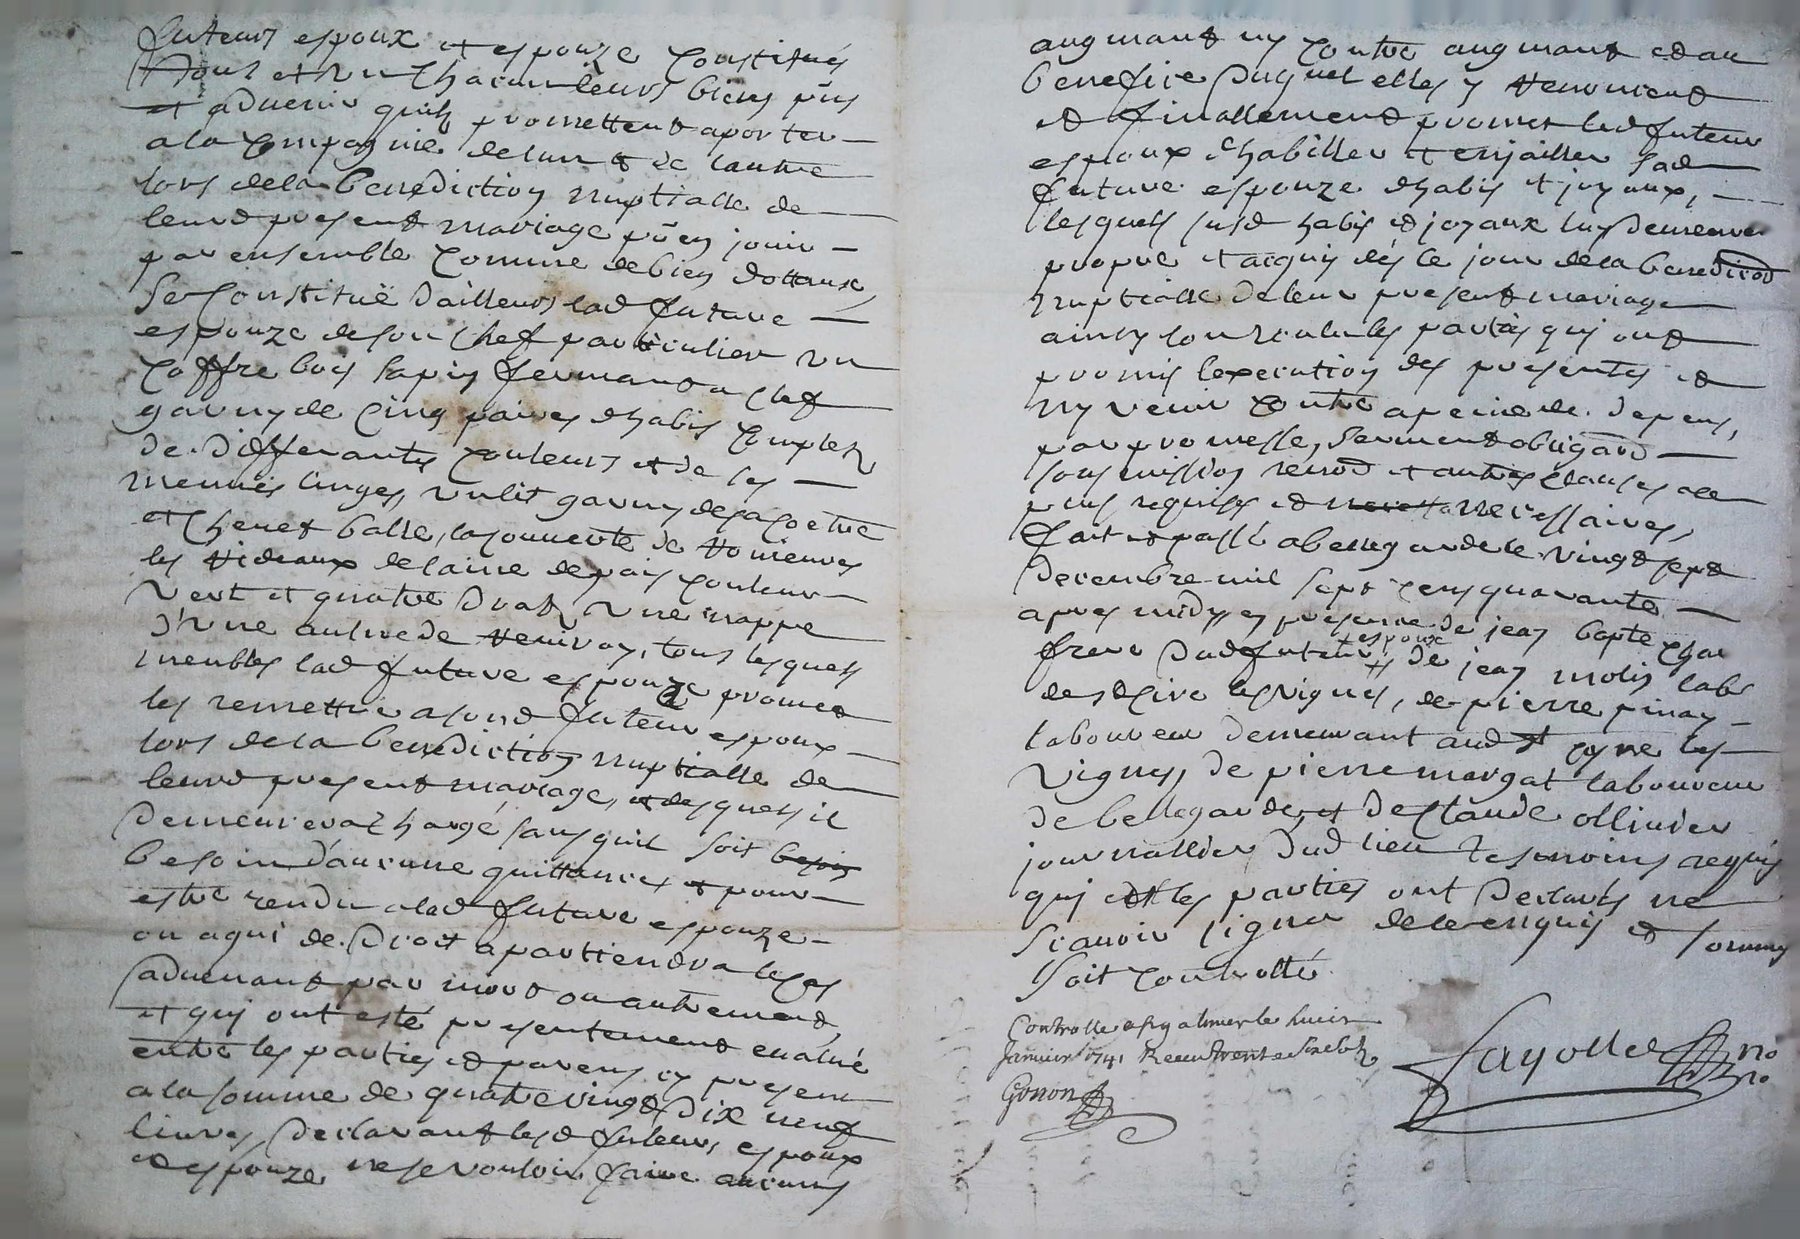 futeurs espoux et espouze constitués
tous et un chacun leurs biens pñs
et advenir quils promettent aporter
a la compagnie de lun et de lautre
lors de la benediction nuptialle de
leurd present mariage pr en jouir
par ensemble comme de bien dottaux,
Se constituë dailleurs lad future
espouze de son chef particulier un
coffre bois sapin fermant a clef
garny de cinq paires dhabis complets
de differantes couleurs et de ses
menues linges, un lit garny de sa coetre
et chevet balle, la couverte de
les rideaux de laine de pais couleur
vert et quatre draps une nappe
tous lesquels
meubles lad future espouze promet
les remettre a sond futeur espoux
lors de la benediction nuptialle de
leurd present mariage, et desquels il
demeurera chargé sans quil soit besoin
besoin daucune quittances et pour
estre rendu a lad future espouze
ou a qui de droit apartiendra le cas
advenant par mort ou autrement,
et qui ont esté presentement evalué
entre les parties et parens cy presens
a la somme de quatre vingt dix neuf
livres, declarant lesd futeurs espoux
et espouze ne se vouloir faire aucuns
augmant ny contre augmant et au
benefice duquel elles y renoncent
et finallement promet led futeur
espoux dhabiller et enjailler sad
future espouze dhabis et joyaux,
lesquels susd habis et joyaux luy demeurer
propre et acquis dés le jour de la benediction
nuptialle de leur present mariage
ainsy les parties qui ont
promis lexecution des presentes et
ny venir contre a peine de depens,
par promesse, serment obligaon
soumission renon et autres clauses
plus requises et necessaires,
fait et passé a bellegarde le vingt sept
decembre mil sept cens quarante
apres midy, en presence de jean bapte
frere dud futeur espoux de jean molin labr
de st cire les vignes, de pierre pinay
laboureur demeurant aud st cyre les
vignes, de pierre margat laboureur
de bellegarde, et de Claude ollivier
journallier dud lieu tesmoins requis
qui et les parties ont declarés ne
scavoir signer de ce enquis et sommés
soit controllé
Controlle a St galmier le huit
Janvier 1741 Receu trente six sols
Gonon
fayolle no re